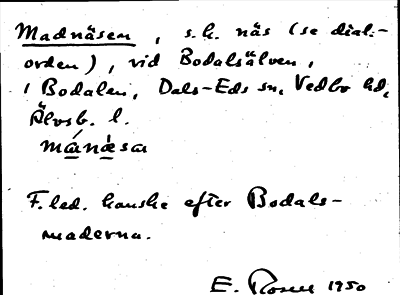 Madnäsen, s.k. näs (se dial.-
orden), vid Bodalsälven,
i Bodalen, Dals-Eds sn, Vedbo hd,
Älvsb. l.
mánæ̀sa
F.led. kanske efter Bodals-
maderna.
E. Rosell 1950